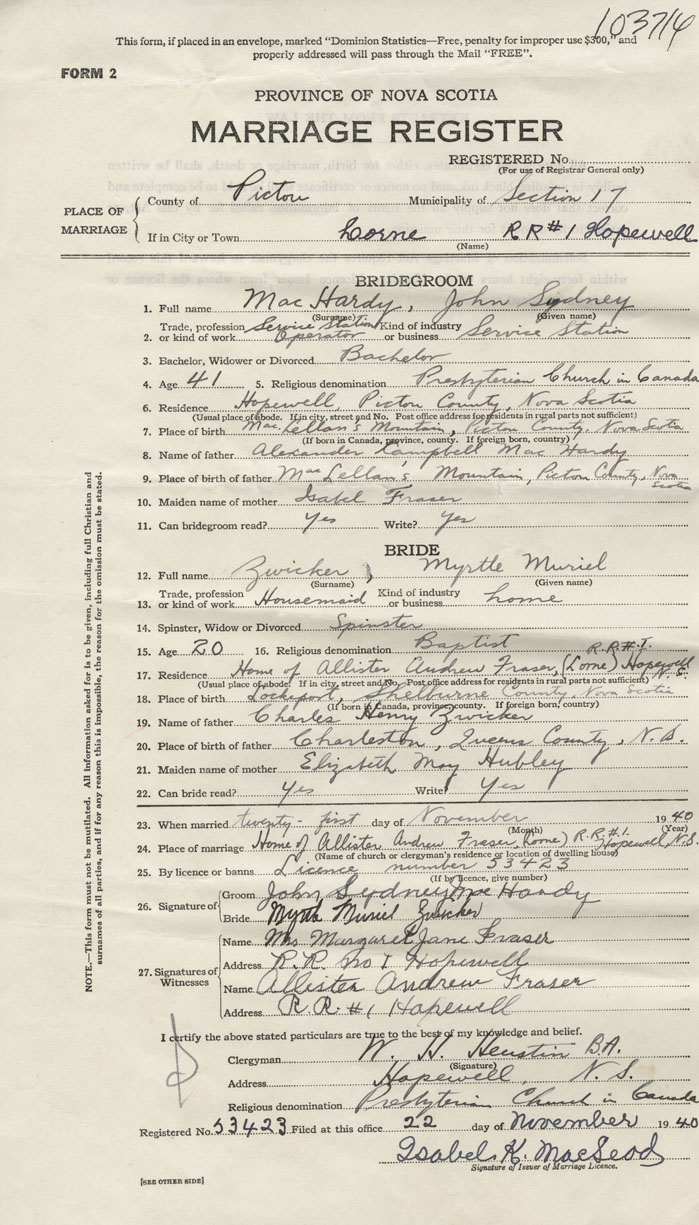 103716
This form, if placed in an envelope, marked "Dominion Statistics—Free, penalty for improper use $300," and
properly addressed will pass through the Mail "FREE".
FORM 2
PROVINCE OF NOVA SCOTIA
MARRIAGE REGISTER
REGISTERED No.
(For use of Registrar General only)
PLACE OF MARRIAGE
County of Pictou Municipality of Section 17
If in City or Town Lorne RR #1 Hopewell
(Name)
BRIDEGROOM
1. Full name Mac Hardy, John Sydney
(Surname) (Given name)
Trade, profession Service Station Kind of industry
2. or kind of work Operator or business Service Station
3. Bachelor, Widower or Divorced Bachelor
4. Age 41 5. Religious denomination Presbyterian Church in Canada
6. Residence Hopewell, Pictou County, Nova Scotia
(Usual place of abode. If in city, street and No. Post office address for residents in rural parts not sufficient)
7. Place of birth MacLellan's Mountain, Pictou County, Nova Scotia
(If born in Canada, province, county. If foreign born, country)
8. Name of father Alexander Campbell Mac Hardy
9. Place of birth of father MacLellan's Mountain, Pictou County, Nova Scotia
10. Maiden name of mother Isabel Fraser
11. Can bridegroom read? Yes Write? Yes
BRIDE
12. Full name Zwicker, Myrtle Muriel
(Surname) (Given name)
Trade, profession Kind of industry
13. or kind of work Housemaid or business home
14. Spinster, Widow or Divorced Spinster
15. Age 20 16. Religious denomination Baptist R.R.#1.
17. Residence Home of Allister Andrew Fraser, (Lorne) Hopewell N.S.
(Usual place of abode. If in city, street and No. Post office address for residents in rural parts not sufficient)
18. Place of birth Lockeport, Shelburne County, Nova Scotia
(If born in Canada, province, county. If foreign born, country)
19. Name of father Charles Henry Zwicker
20. Place of birth of father Charleston, Queens County, N.S.
21. Maiden name of mother Elizabeth May Hubley
22. Can bride read? Yes Write? Yes
23. When married twenty-first day of November 1940
(Month) (Year)
24. Place of marriage Home of Allister Andrew Fraser, (Lorne) R.R.#1. Hopewell, N.S.
(Name of church or clergyman's residence or location of dwelling house)
25. By licence or banns Licence number 53423
(If by licence, give number)
26. Signature of
Groom John Sydney Mac Hardy
Bride Myrtle Muriel Zwicker
27. Signatures of Witnesses
Name Mrs Margaret Jane Fraser
Address R.R. No 1 Hopewell
Name Allister Andrew Fraser
Address R.R. #1 Hopewell
I certify the above stated particulars are true to the best of my knowledge and belief.
Clergyman W. H. Heustin B.A.
(Signature)
Address Hopewell, N.S.
Religious denomination Presbyterian Church in Canada
Registered No. 53423 Filed at this office 22 day of November 1940
Isabel K. MacLeod
Signature of Issuer of Marriage Licence.
[SEE OTHER SIDE]
NOTE.—This form must not be mutilated. All information asked for is to be given, including full Christian and
surnames of all parties, and if for any reason this is impossible, the reason for the omission must be stated.